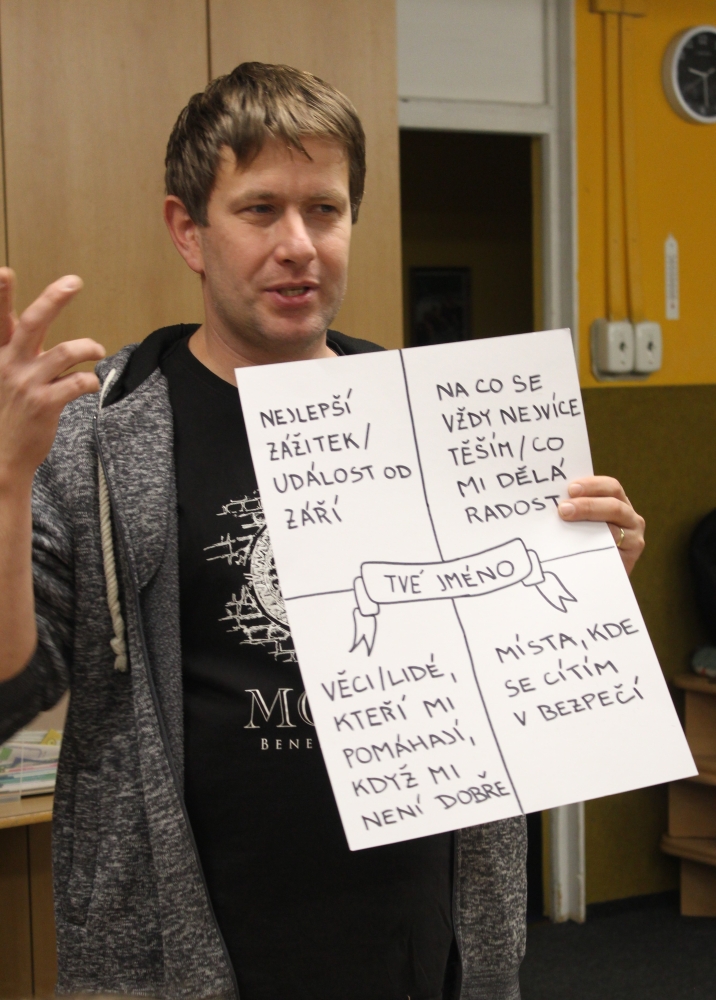 NEJLEPŠÍ
ZÁŽITEK/
UDÁLOST OD
ZÁŘÍ
NA CO SE
VŽDY NEJVÍCE
TĚŠÍM/CO
MI DĚLÁ
RADOST
TVÉ JMÉNO
VĚCI/LIDÉ,
KTEŘÍ MI
POMÁHAJÍ,
KDYŽ MI
NENÍ DOBŘE
MÍSTA, KDE
SE CÍTÍM
V BEZPEČÍ